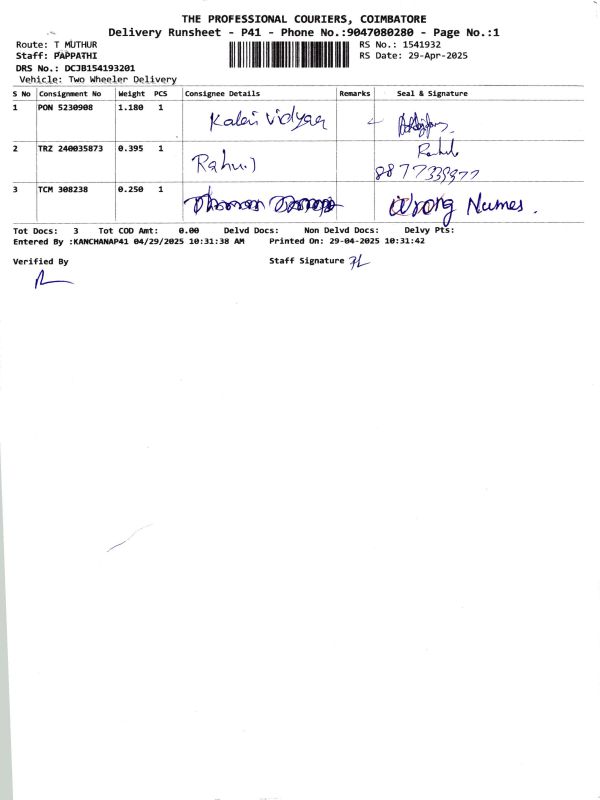 THE PROFESSIONAL COURIERS, COIMBATORE
Delivery Runsheet - P41 - Phone No.:9047080280 - Page No.:1
Route: T MUTHUR RS No.: 1541932
Staff: PAPPATHI RS Date: 29-Apr-2025
DRS No.: DCJB154193201
Vehicle: Two Wheeler Delivery
S No Consignment No Weight PCS Consignee Details Remarks Seal & Signature
1 PON 5230908 1.180 1 Kalai Vidyaa
2 TRZ 240035873 0.395 1 Rahul Rahul
8877339977
3 TCM 308238 0.250 1 Wrong Names.
Tot Docs: 3 Tot COD Amt: 0.00 Delvd Docs: Non Delvd Docs: Delvy Pts:
Entered By :KANCHANAP41 04/29/2025 10:31:38 AM Printed On: 29-04-2025 10:31:42
Verified By Staff Signature